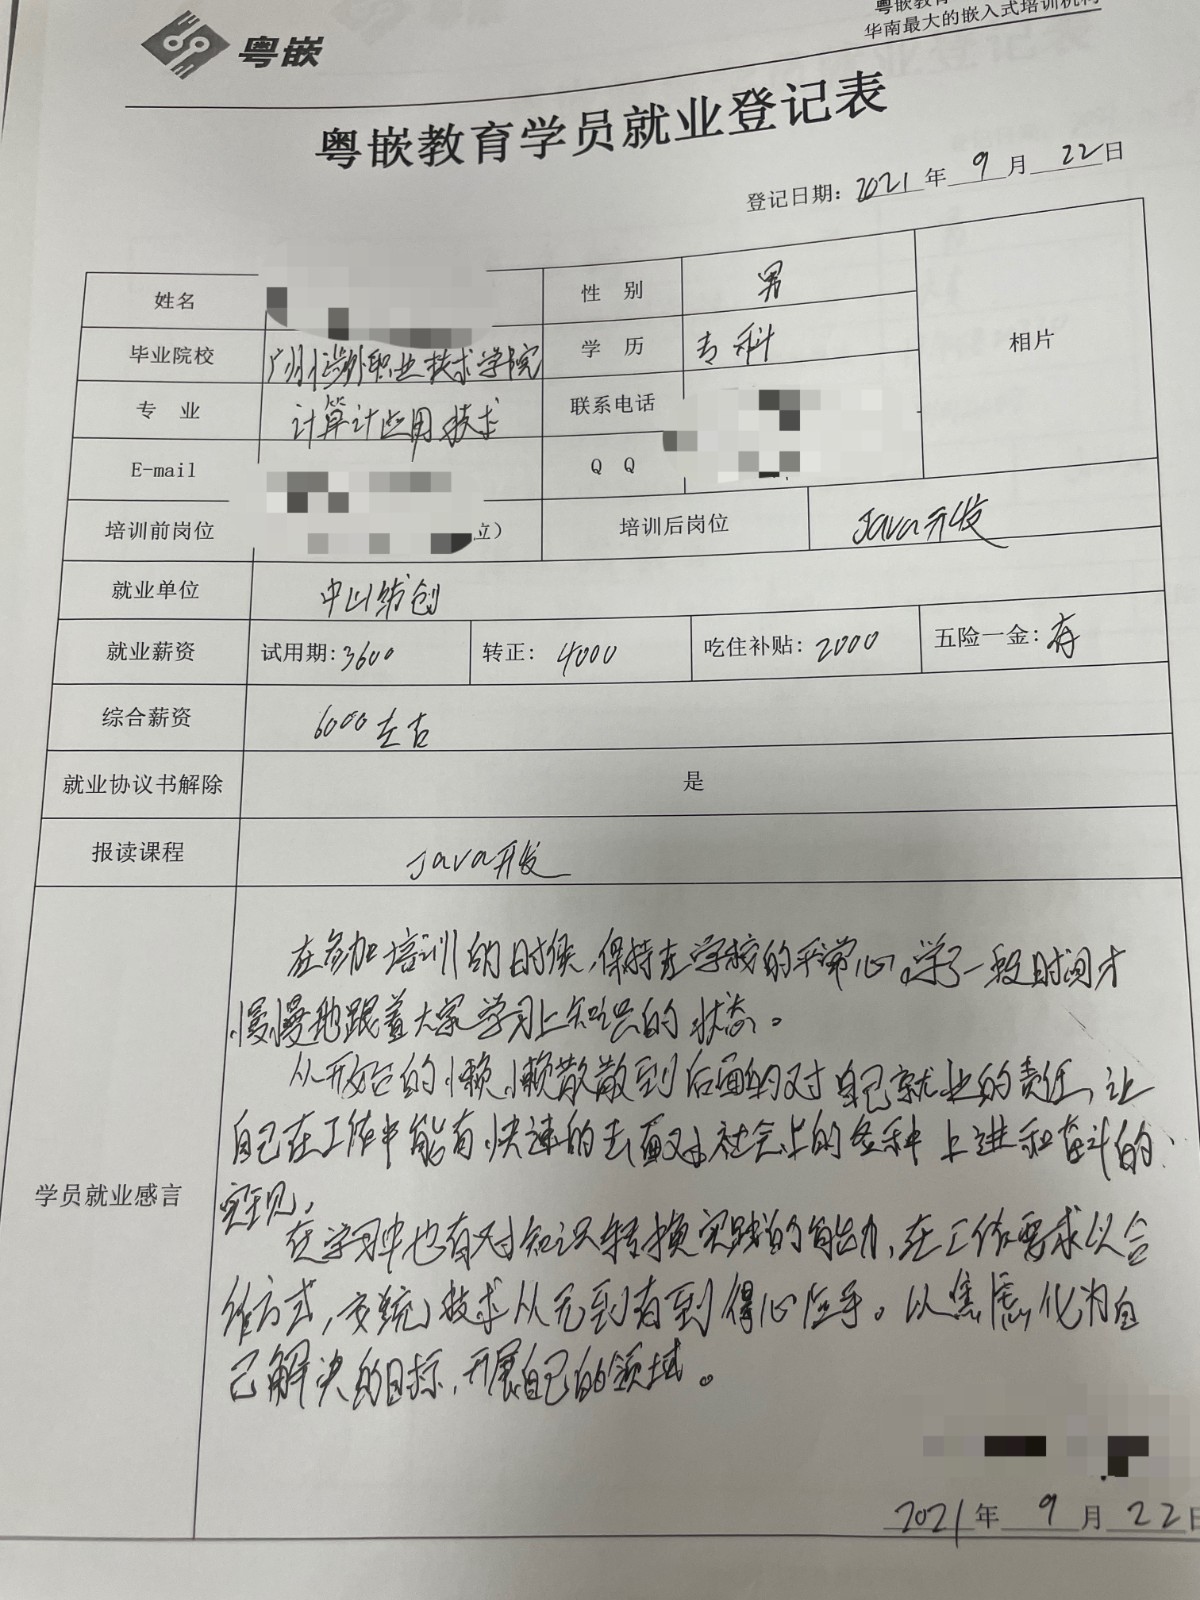 粤嵌
粤嵌教育
华南最大的嵌入式培训机构
粤嵌教育学员就业登记表
登记日期：2021年9月22日
姓名 性 别 男 相片
毕业院校 广州涉外职业技术学院 学 历 专科
专 业 计算计应用技术 联系电话
E-mail Q Q
培训前岗位 立） 培训后岗位 Java开发
就业单位 中山纺创
就业薪资 试用期：3600 转正：4000 吃住补贴：2000 五险一金：有
综合薪资 6000左右
就业协议书解除 是
报读课程 Java开发
学员就业感言
在参加培训的时候，保持在学校的平常心。学了一段时间才
慢慢地跟着大家学习上知识的状态。
从开始的懒懒散散到后面的对自己就业的责任，让
自己在工作中能有快速的去面对社会上的各种上进和奋斗的
实现。
在学习中也有对知识转换实践的能力，在工作要求以合
作方式，交流，技术从无到有到得心应手。以焦虑，化为自
己解决的目标，开展自己的领域。
2021年9月22日